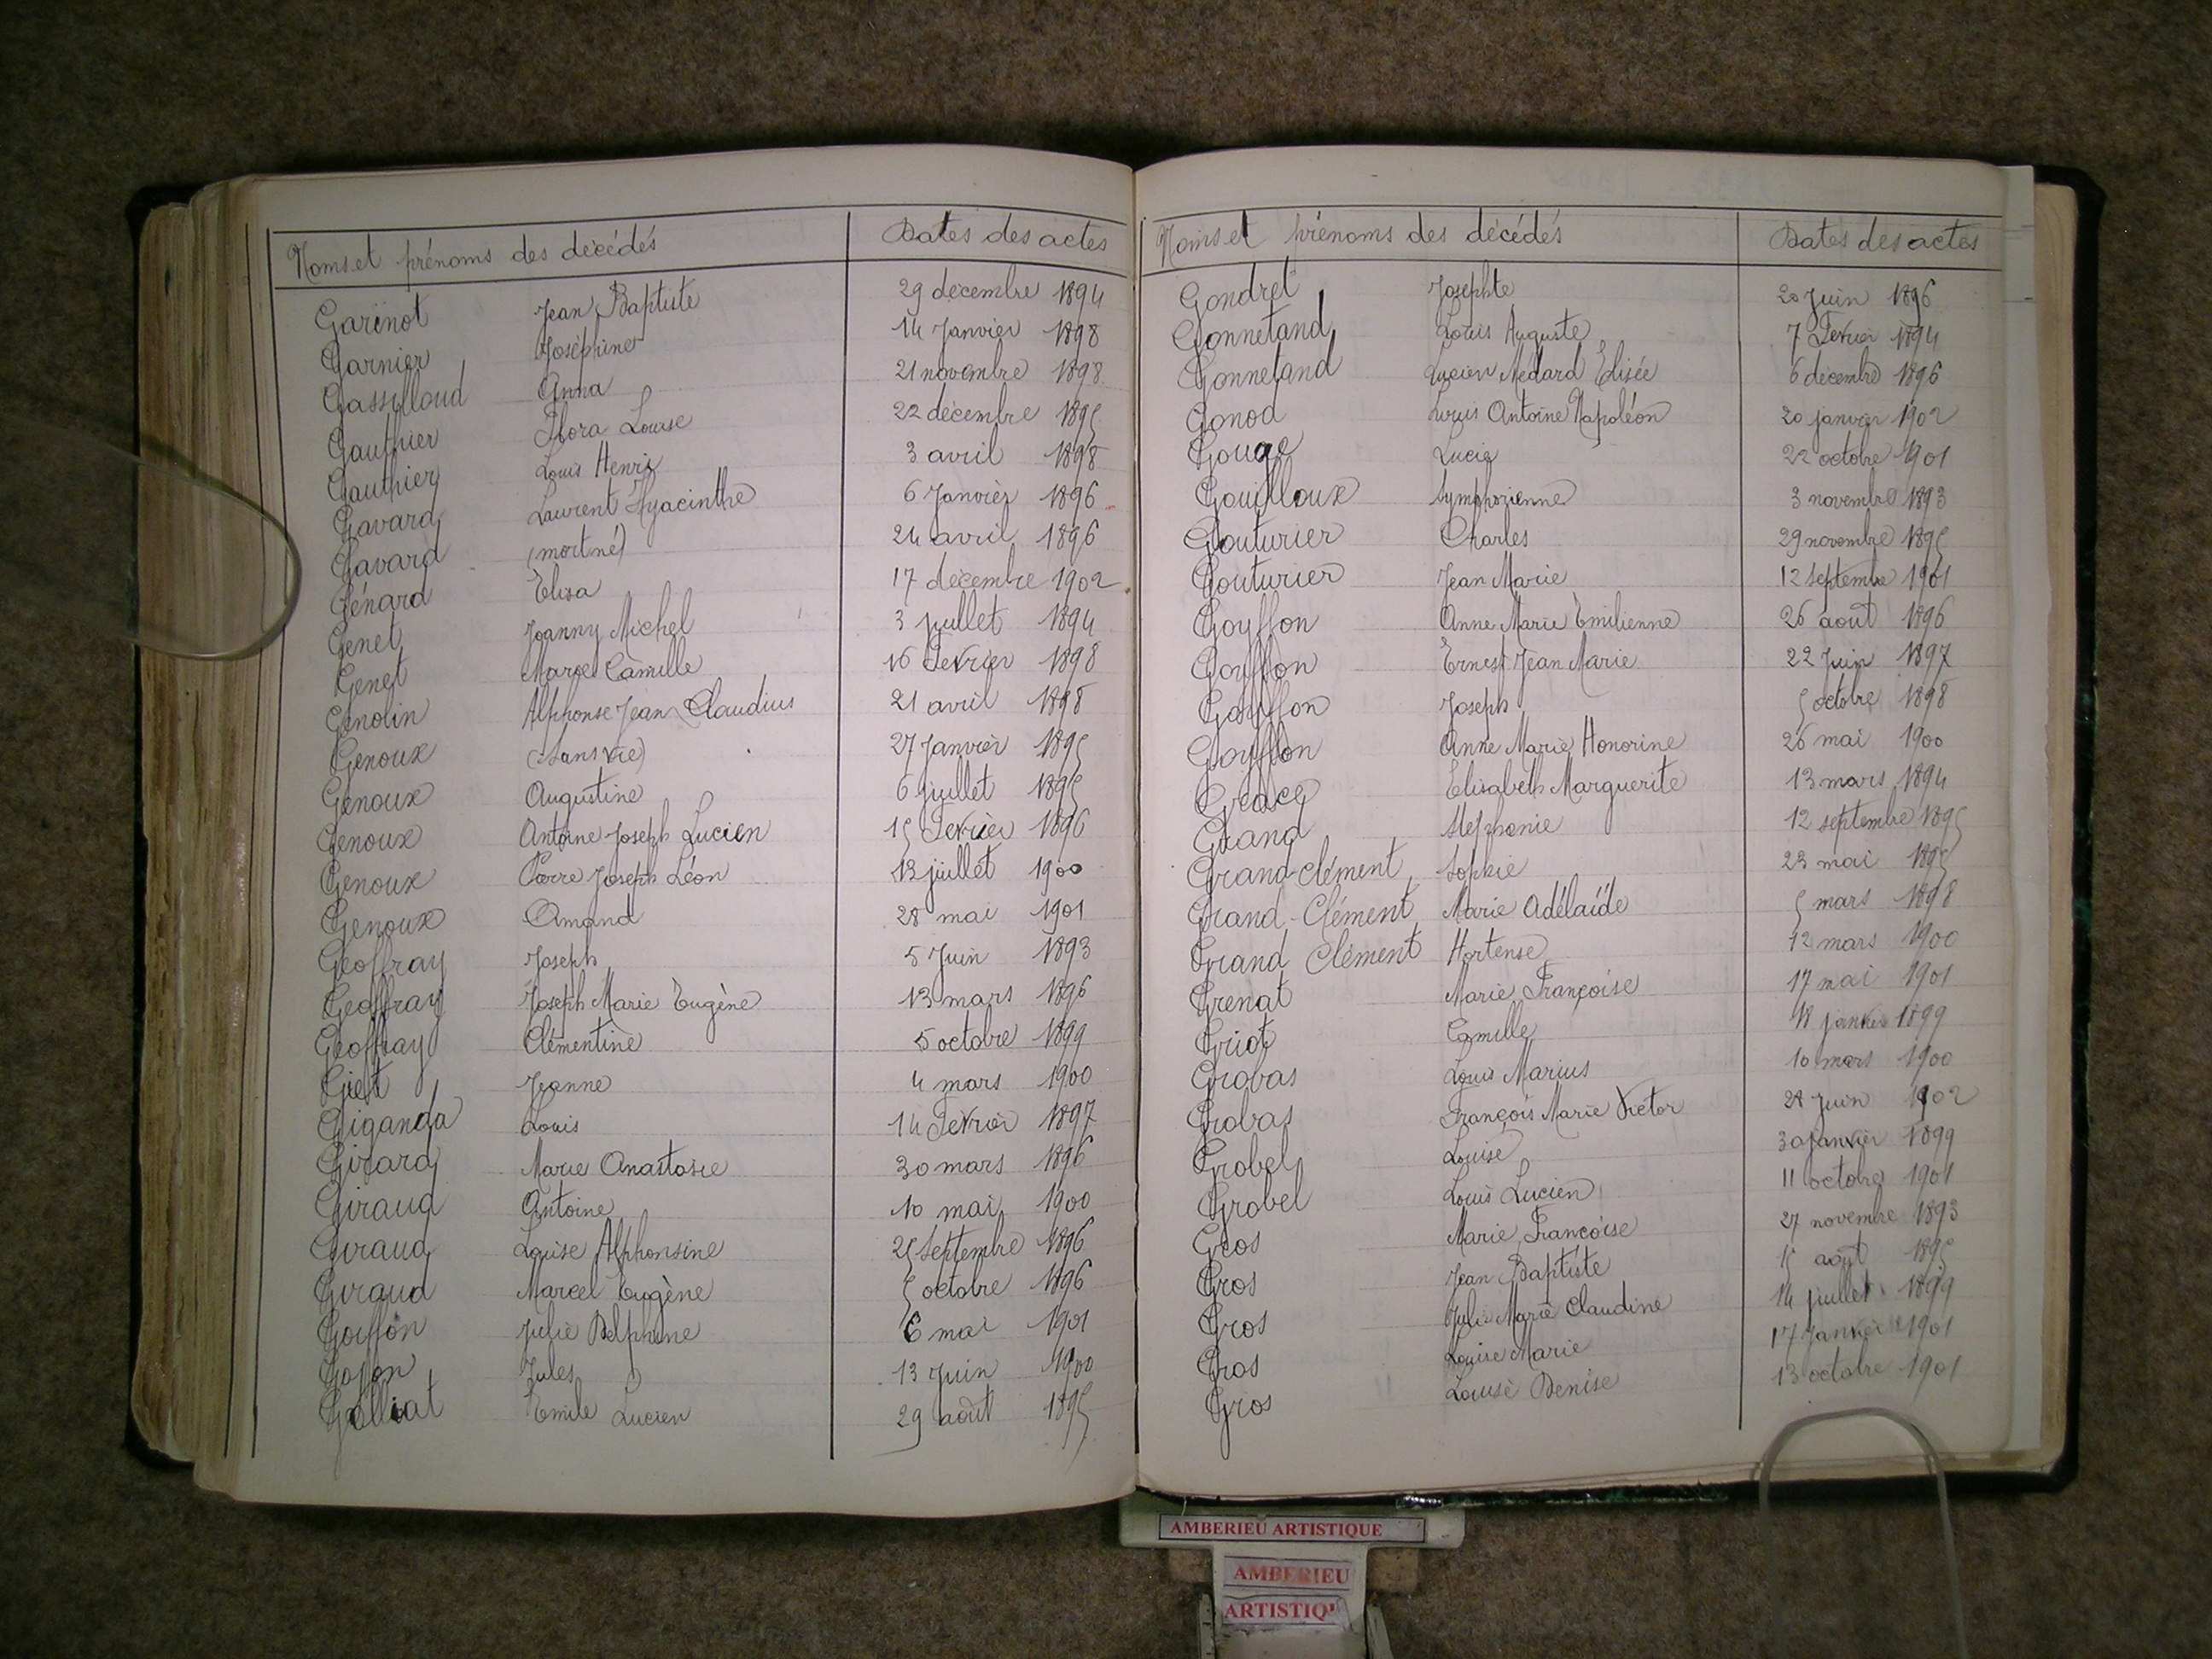 Noms et prénoms des décédés Dates des actes
Garinot Jean Baptiste 29 décembre 1894
Garnier Joséphine 14 Janvier 1898
Gassilloud Anna 21 novembre 1898
Gauthier Flora Louise 22 décembre 1895
Gauthier Louis Henri 3 avril 1898
Gavard Laurent Hyacinthe 6 Janvier 1896
Gavard (mort né) 24 avril 1896
Génard Elisa 17 décembre 1902
Genet Joanny Michel 3 juillet 1894
Genet Marcel Camille 16 Fevrier 1898
Genolin Alphonse Jean Claudius 21 avril 1898
Genoux (Sans vie) 27 Janvier 1895
Genoux Augustine 6 juillet 1895
Genoux Antoine Joseph Lucien 15 Fevrier 1896
Genoux Pierre Joseph Léon 13 juillet 1900
Genoux Amand 28 mai 1901
Geoffray Joseph 5 Juin 1893
Geoffray Joseph Marie Eugène 13 mars 1896
Geoffray Clémentine 5 octobre 1899
Giet Jeanne 4 mars 1900
Giganda Louis 14 Fevrier 1897
Girard Marie Anastasie 30 mars 1896
Giraud Antoine 10 mai 1900
Giraud Louise Alphonsine 25 Septembre 1896
Giraud Marcel Eugène 5 octobre 1896
Goiffon Julie Delphine 6 mai 1901
Gojon Jules 13 Juin 1900
Golliat Emile Lucien 29 août 1895
Noms et prénoms des décédés Dates des actes
Gondret Josephte 20 Juin 1896
Gonnetand Louis Auguste 7 Fevrier 1894
Gonnetand Lucien Médard Elisée 6 décembre 1896
Gonod Louis Antoine Napoléon 20 janvier 1902
Gouge Lucie 22 octobre 1901
Gouilloux Symphorienne 3 novembre 1893
Gouturier Charles 29 novembre 1895
Gouturier Jean Marie 12 septembre 1901
Goyffon Anne Marie Emilienne 26 août 1896
Goyffon Ernest Jean Marie 22 Juin 1897
Goyffon Joseph 5 octobre 1898
Goyffon Anne Marie Honorine 26 mai 1900
Elisabeth Marguerite 13 mars 1894
Grand Stephanie 12 septembre 1895
Grand-clément Sophie 23 mai 1895
Grand-Clément Marie Adélaïde 5 mars 1898
Grand Clément Hortense 12 mars 1900
Grenat Marie Françoise 17 mai 1901
Griot Camille 18 janvier 1899
Grobas Louis Marius 10 mars 1900
Grobas François Marie Victor 28 Juin 1902
Grobel Louise 30 janvier 1899
Grobel Louis Lucien 11 octobre 1901
Gros Marie Françoise 27 novembre 1893
Gros Jean Baptiste 15 août 1895
Gros Julie Marie Claudine 14 juillet 1899
Gros Louise Marie 17 Janvier 1901
Gros Louise Denise 13 octobre 1901
AMBERIEU ARTISTIQUE
AMBERIEU
ARTISTIQU